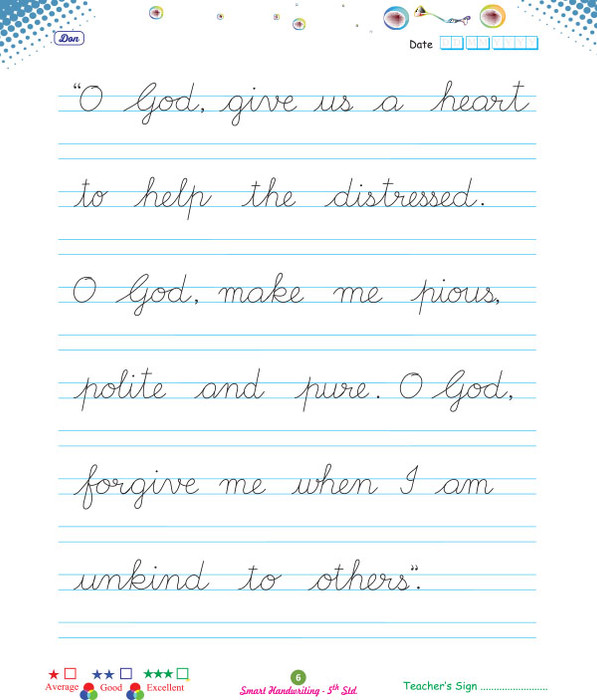 Don
Date DD MM YYYY
“O God, give us a heart
to help the distressed.
O God, make me pious,
polite and pure. O God,
forgive me when I am
unkind to others”.
Average Good Excellent
6
Smart Handwriting - 5th Std.
Teacher's Sign ........................